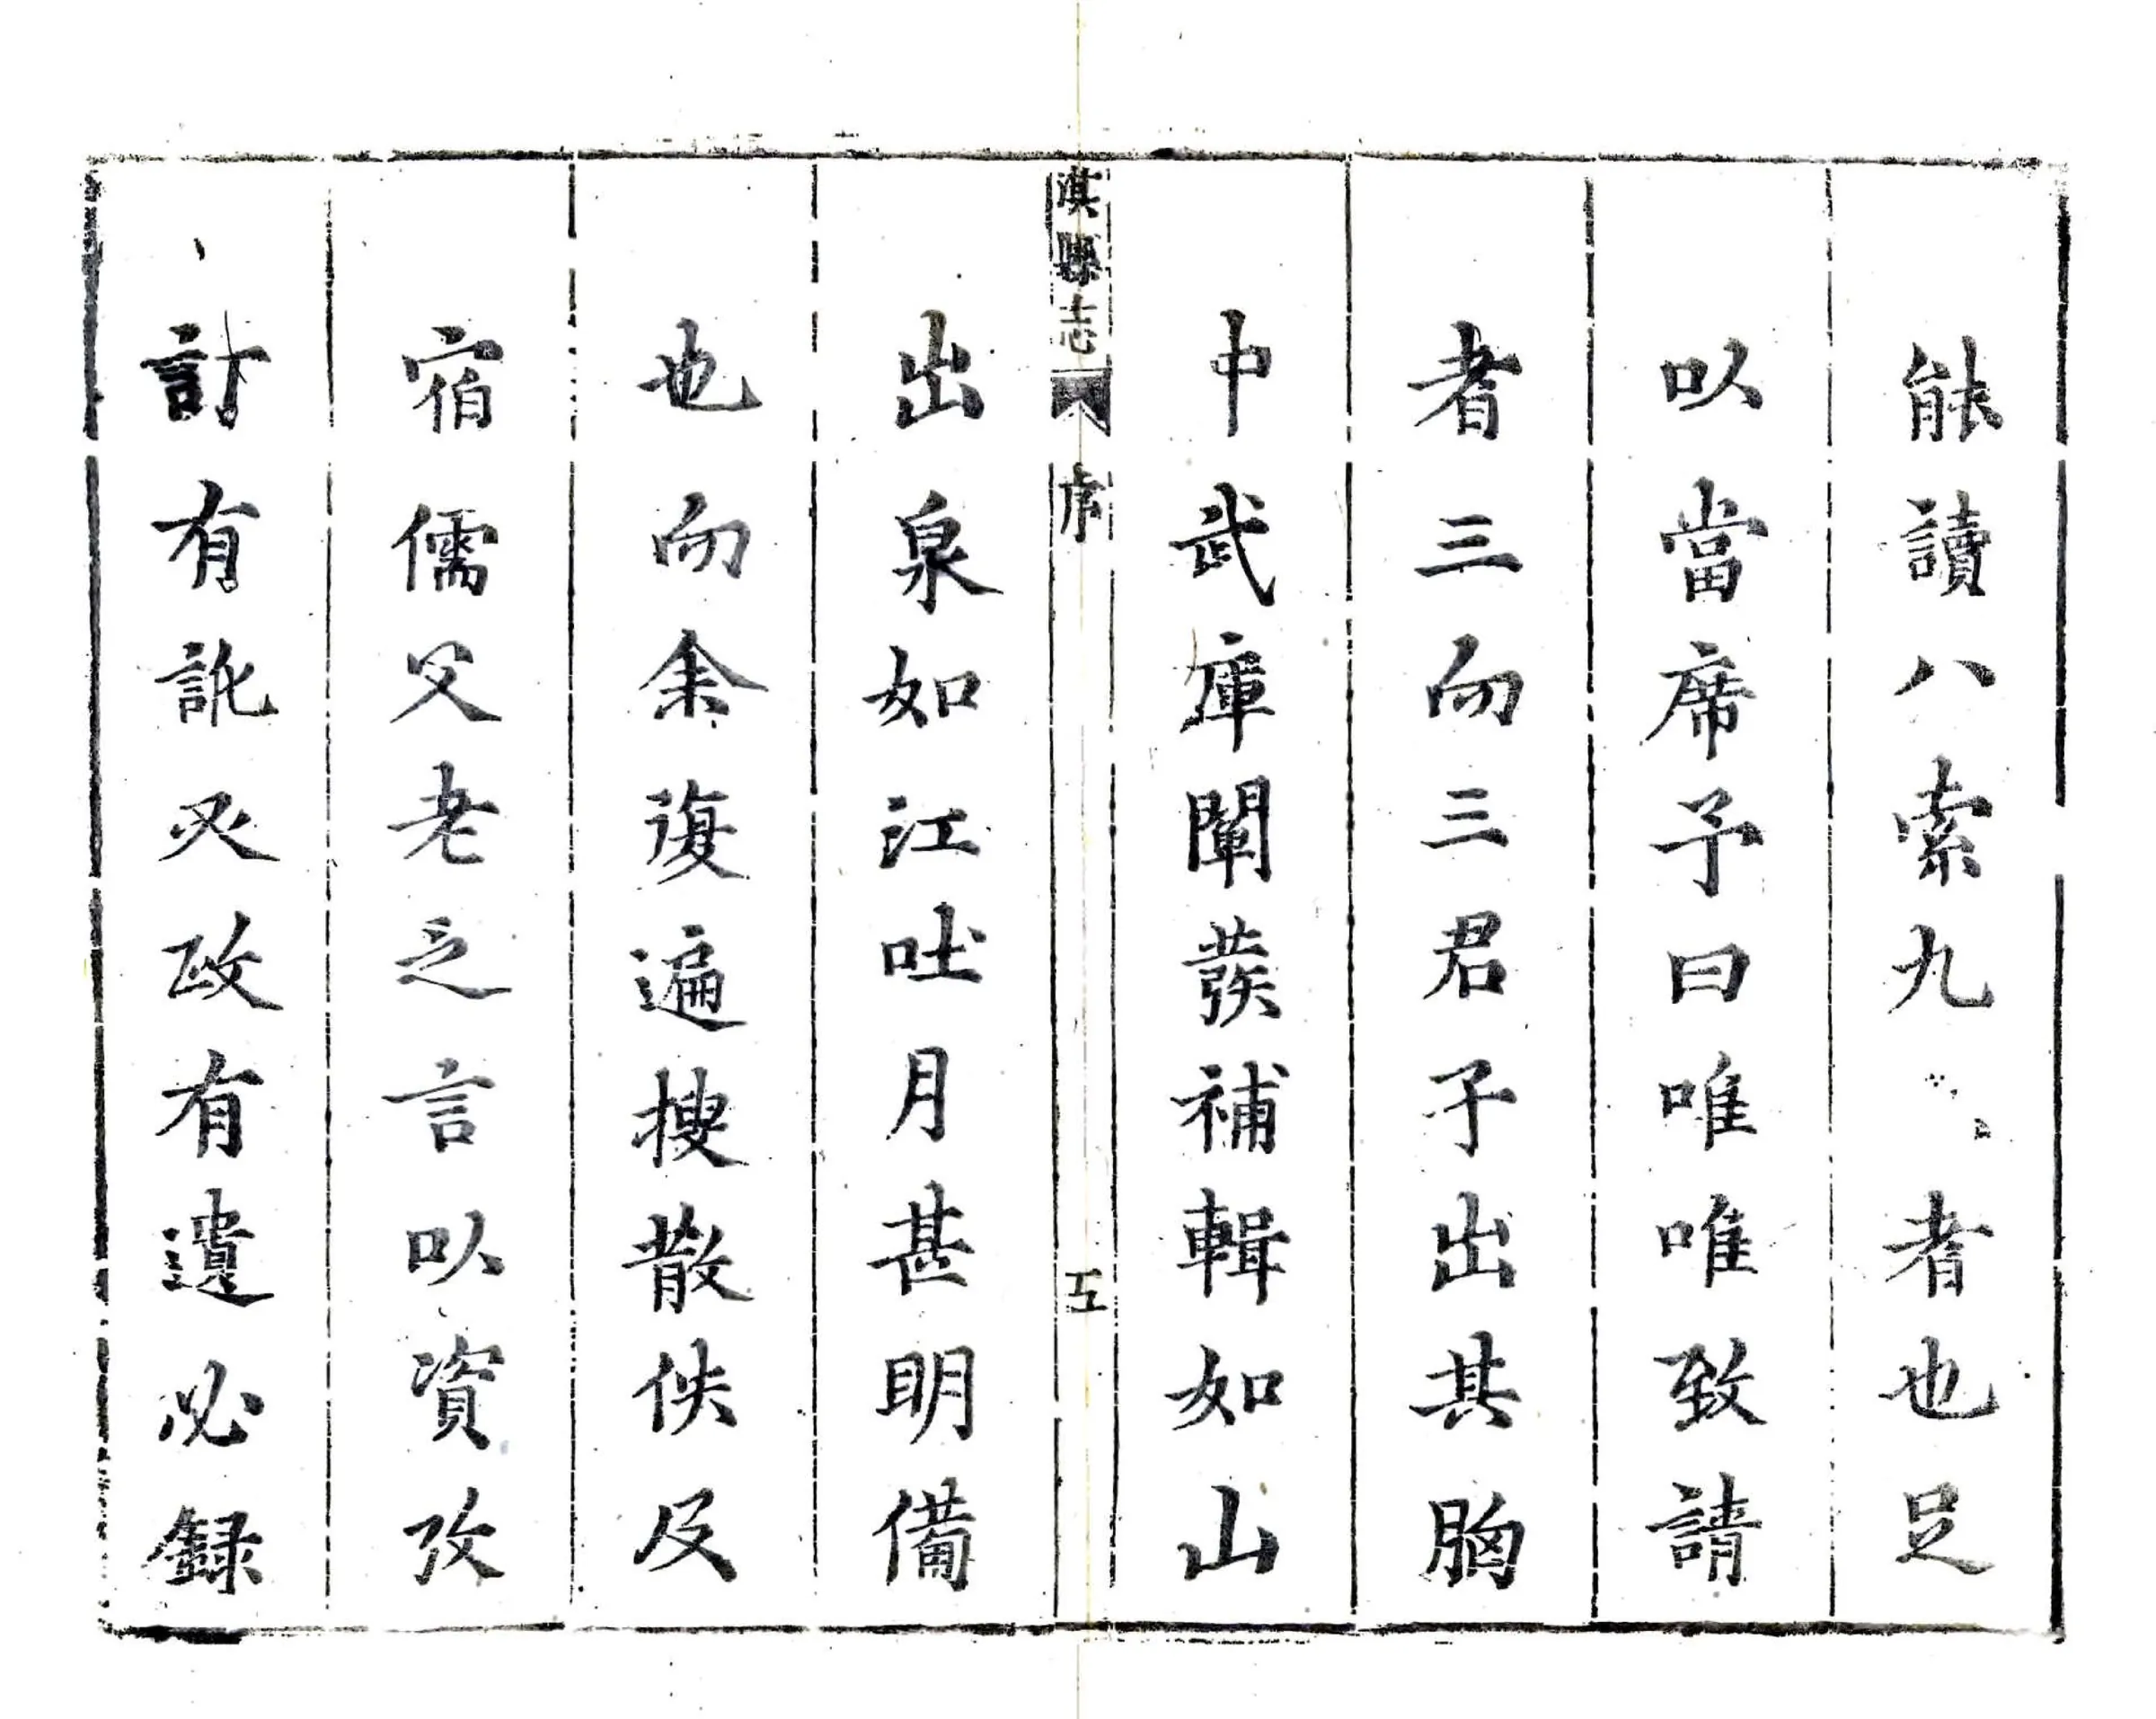 能讀八索九者也足
以當席予曰唯唯致請
者三而三君子出其胸
中武庫闡發補輯如山
淇縣志 序 五
出泉如江吐月甚明備
也而余復遍搜散佚及
宿儒父老之言以資攷
討有訛政有遺必録